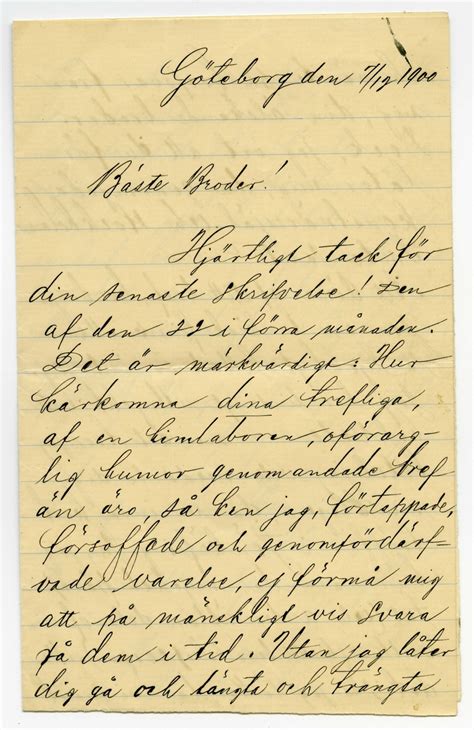 Göteborg den 7/12 1900
Bäste Broder!
Hjärtligt tack för
din senaste skrifvelse! Den
af den 22 i förra månaden.
Det är märkvärdigt: Hur
kärkomna dina trefliga,
af en oförarg-
lig humor genomandade bref
än äro, så kan jag, förtappade,
försoffade och genomfördärf-
vade varelse, ej förmå mig
att på mänskligt vis svara
på dem i tid. Utan jag låter
dig gå och längta och trängta